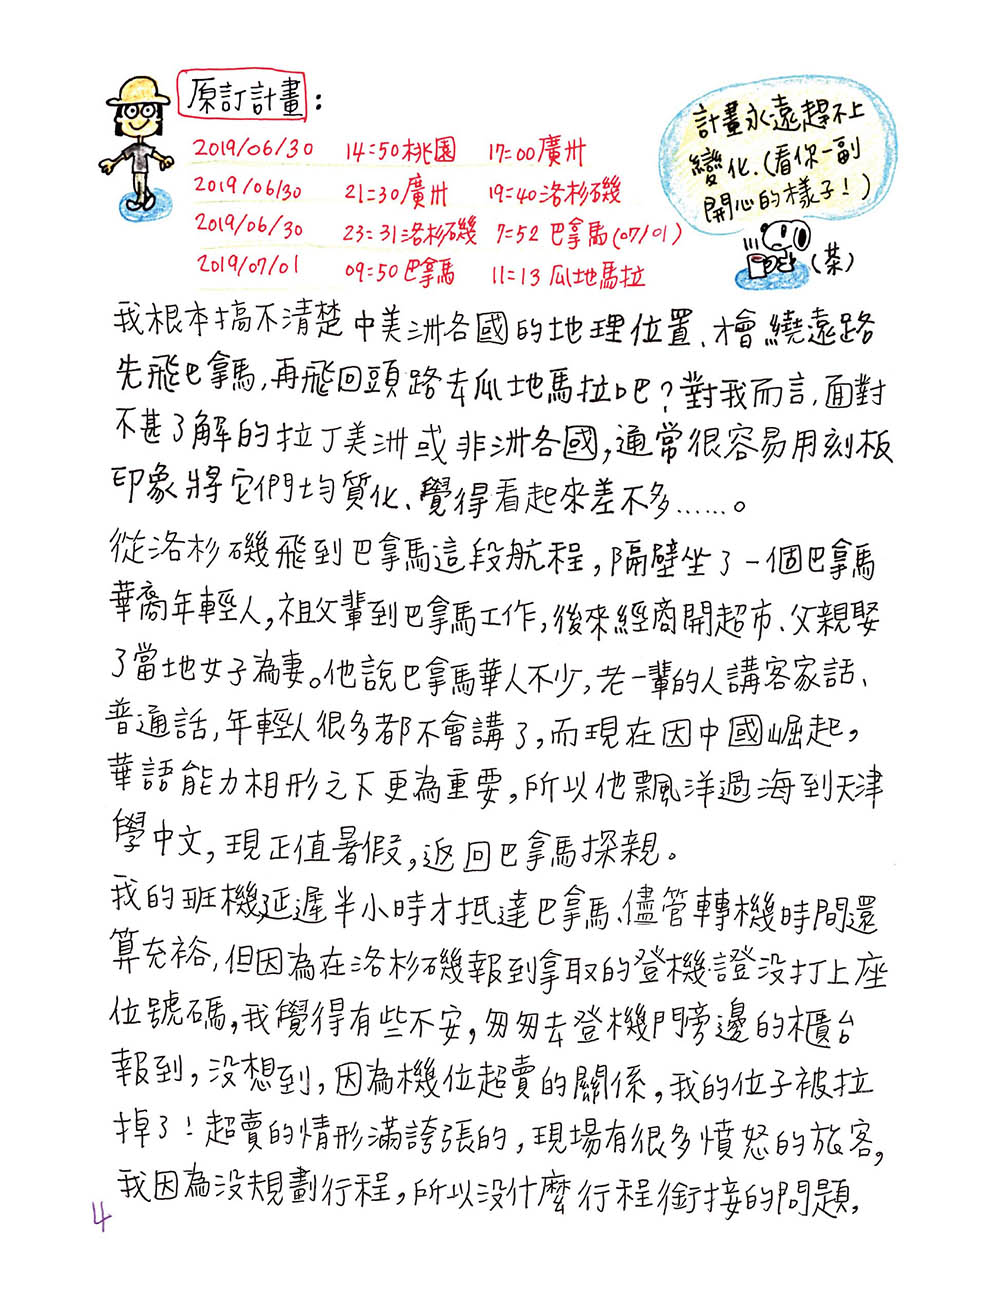 原訂計畫：
2019/06/30 14:50桃園 17:00廣州
2019/06/30 21:30廣州 19:40洛杉磯
2019/06/30 23:31洛杉磯 7:52巴拿馬(07/01)
2019/07/01 09:50巴拿馬 11:13瓜地馬拉
計畫永遠趕不上
變化、(看你一副
開心的樣子！)
(茶)
我根本搞不清楚中美洲各國的地理位置、才會繞遠路
先飛巴拿馬,再飛回頭路去瓜地馬拉吧？對我而言,面對
不甚了解的拉丁美洲或非洲各國,通常很容易用刻板
印象將它們均質化、覺得看起來差不多……。
從洛杉磯飛到巴拿馬這段航程,隔壁坐了一個巴拿馬
華裔年輕人,祖父輩到巴拿馬工作,後來經商開超市、父親娶
了當地女子為妻。他說巴拿馬華人不少,老一輩的人講客家話、
普通話,年輕人很多都不會講了,而現在因中國崛起,
華語能力相形之下更為重要,所以他飄洋過海到天津
學中文,現正值暑假,返回巴拿馬探親。
我的班機延遲半小時才抵達巴拿馬、儘管轉機時間還
算充裕,但因為在洛杉磯報到拿取的登機證沒打上座
位號碼,我覺得有些不安,匆匆去登機門旁邊的櫃台
報到,沒想到,因為機位超賣的關係,我的位子被拉
掉了！超賣的情形滿誇張的,現場有很多憤怒的旅客,
我因為沒規劃行程,所以沒什麼行程銜接的問題,
4